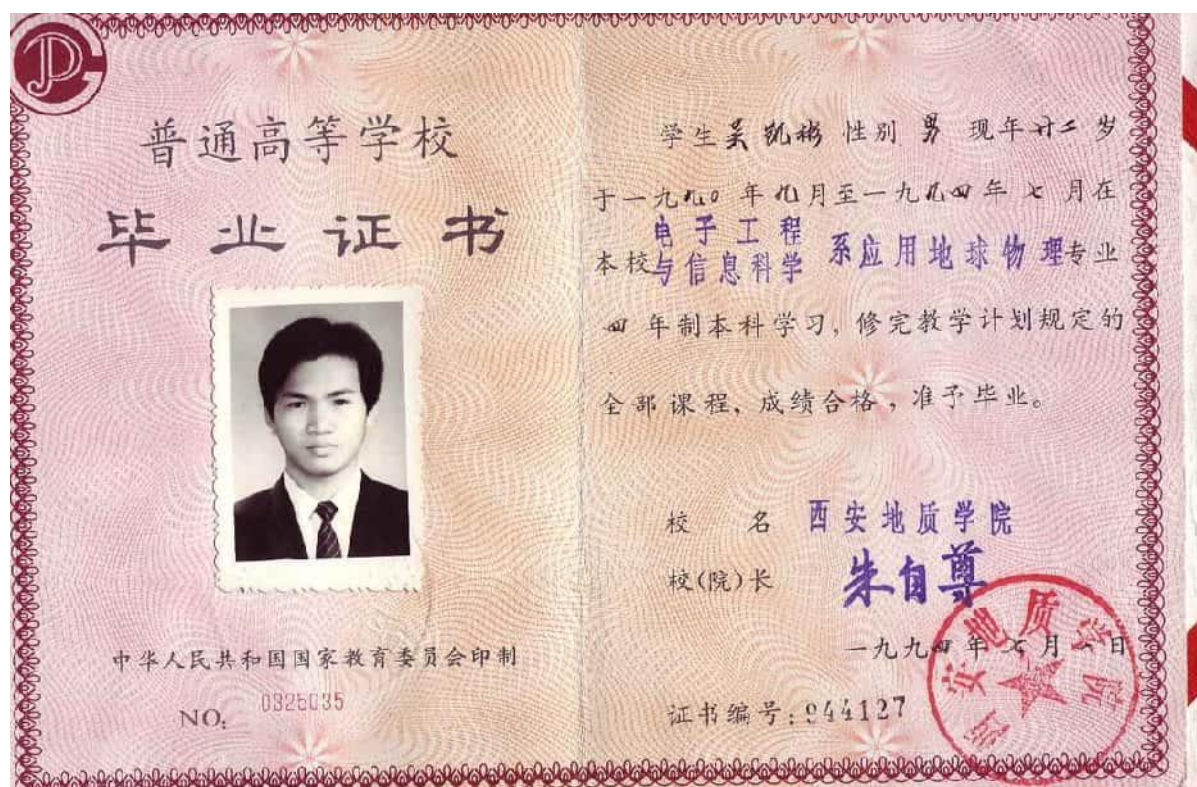 普通高等学校
毕业证书
中华人民共和国国家教育委员会印制
NO: 0325035
学生吴凯彬 性别 男 现年廿二岁
于一九九0年九月至一九九四年七月在
电子工程
本校与信息科学 系应用地球物理专业
四年制本科学习，修完教学计划规定的
全部课程，成绩合格，准予毕业。
校 名 西安地质学院
校(院)长 朱自尊
一九九四年七月一日
证书编号:944127
西安地质学院